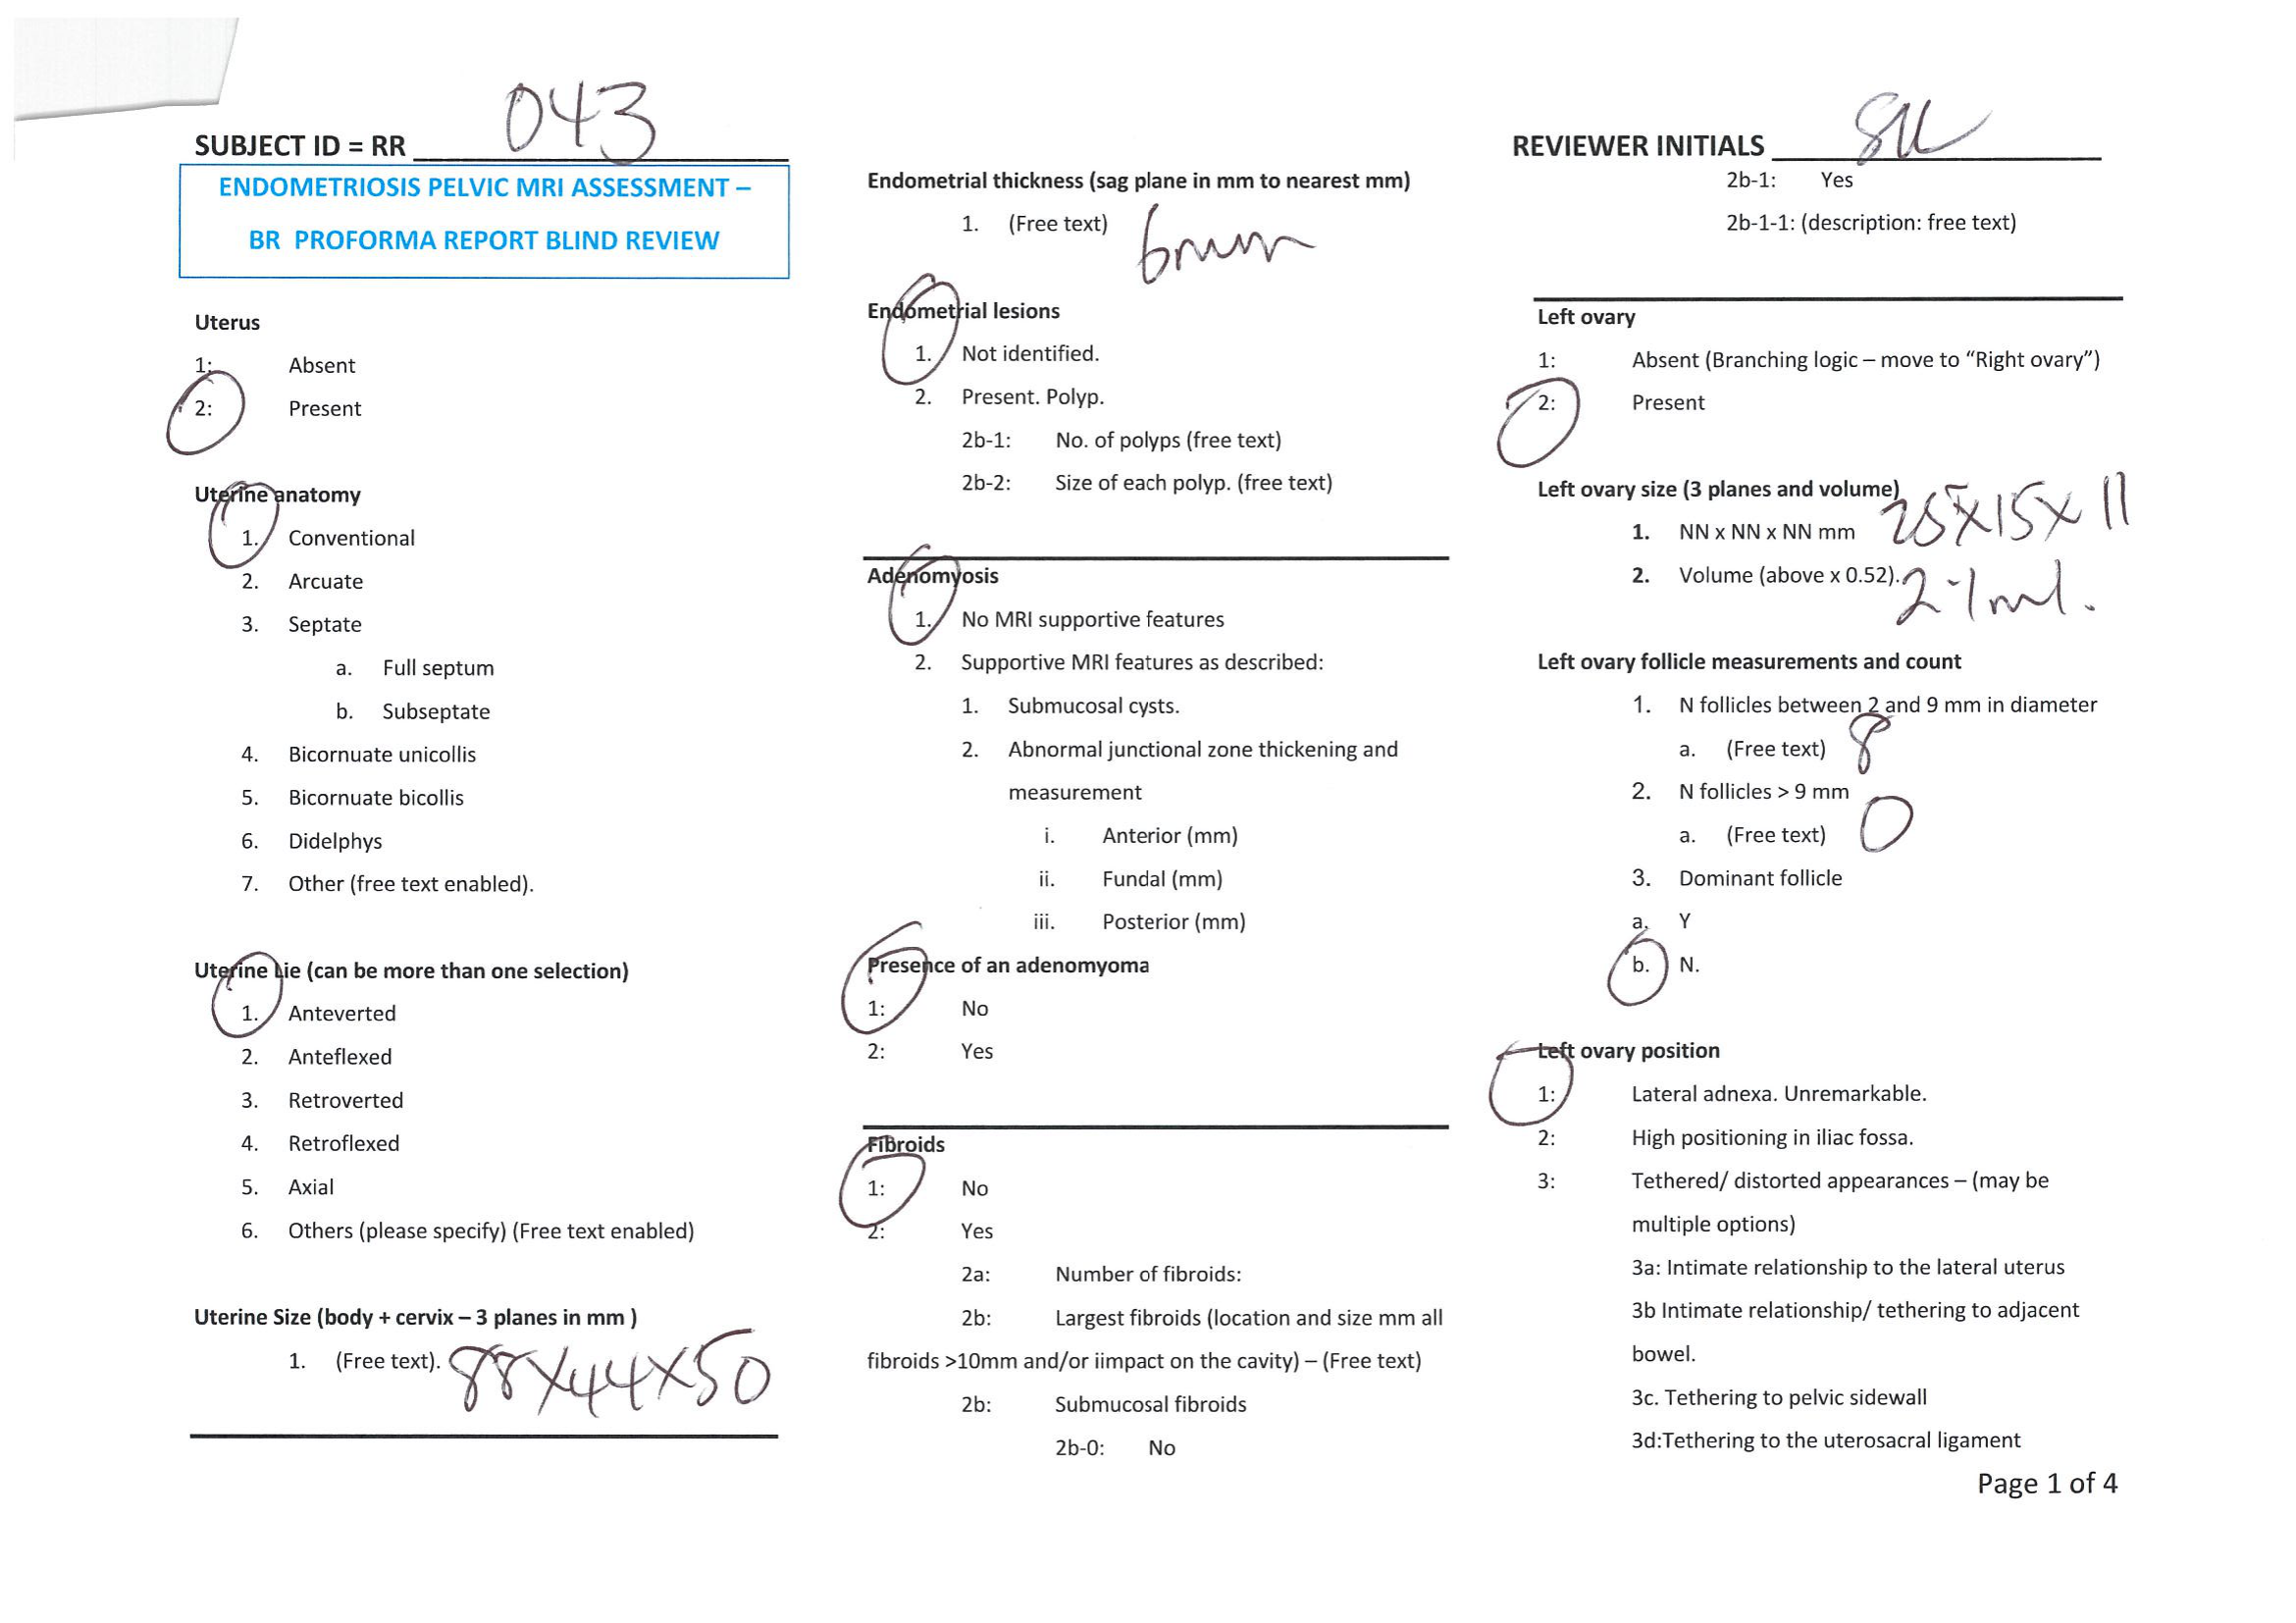 SUBJECT ID = RR 043
ENDOMETRIOSIS PELVIC MRI ASSESSMENT –
BR PROFORMA REPORT BLIND REVIEW
Uterus
1: Absent
2: Present
Uterine anatomy
1. Conventional
2. Arcuate
3. Septate
a. Full septum
b. Subseptate
4. Bicornuate unicollis
5. Bicornuate bicollis
6. Didelphys
7. Other (free text enabled).
Uterine Lie (can be more than one selection)
1. Anteverted
2. Anteflexed
3. Retroverted
4. Retroflexed
5. Axial
6. Others (please specify) (Free text enabled)
Uterine Size (body + cervix – 3 planes in mm )
1. (Free text). 88X44X50
Endometrial thickness (sag plane in mm to nearest mm)
1. (Free text) 6mm
Endometrial lesions
1. Not identified.
2. Present. Polyp.
2b-1: No. of polyps (free text)
2b-2: Size of each polyp. (free text)
Adenomyosis
1. No MRI supportive features
2. Supportive MRI features as described:
1. Submucosal cysts.
2. Abnormal junctional zone thickening and
measurement
i. Anterior (mm)
ii. Fundal (mm)
iii. Posterior (mm)
Presence of an adenomyoma
1: No
2: Yes
Fibroids
1: No
2: Yes
2a: Number of fibroids:
2b: Largest fibroids (location and size mm all
fibroids >10mm and/or iimpact on the cavity) – (Free text)
2b: Submucosal fibroids
2b-0: No
REVIEWER INITIALS
2b-1: Yes
2b-1-1: (description: free text)
Left ovary
1: Absent (Branching logic – move to “Right ovary”)
2: Present
Left ovary size (3 planes and volume)
1. NN x NN x NN mm 25X15X11
2. Volume (above x 0.52). 2.1ml.
Left ovary follicle measurements and count
1. N follicles between 2 and 9 mm in diameter
a. (Free text) 8
2. N follicles > 9 mm
a. (Free text) 0
3. Dominant follicle
a. Y
b. N.
Left ovary position
1: Lateral adnexa. Unremarkable.
2: High positioning in iliac fossa.
3: Tethered/ distorted appearances – (may be
multiple options)
3a: Intimate relationship to the lateral uterus
3b Intimate relationship/ tethering to adjacent
bowel.
3c. Tethering to pelvic sidewall
3d:Tethering to the uterosacral ligament
Page 1 of 4